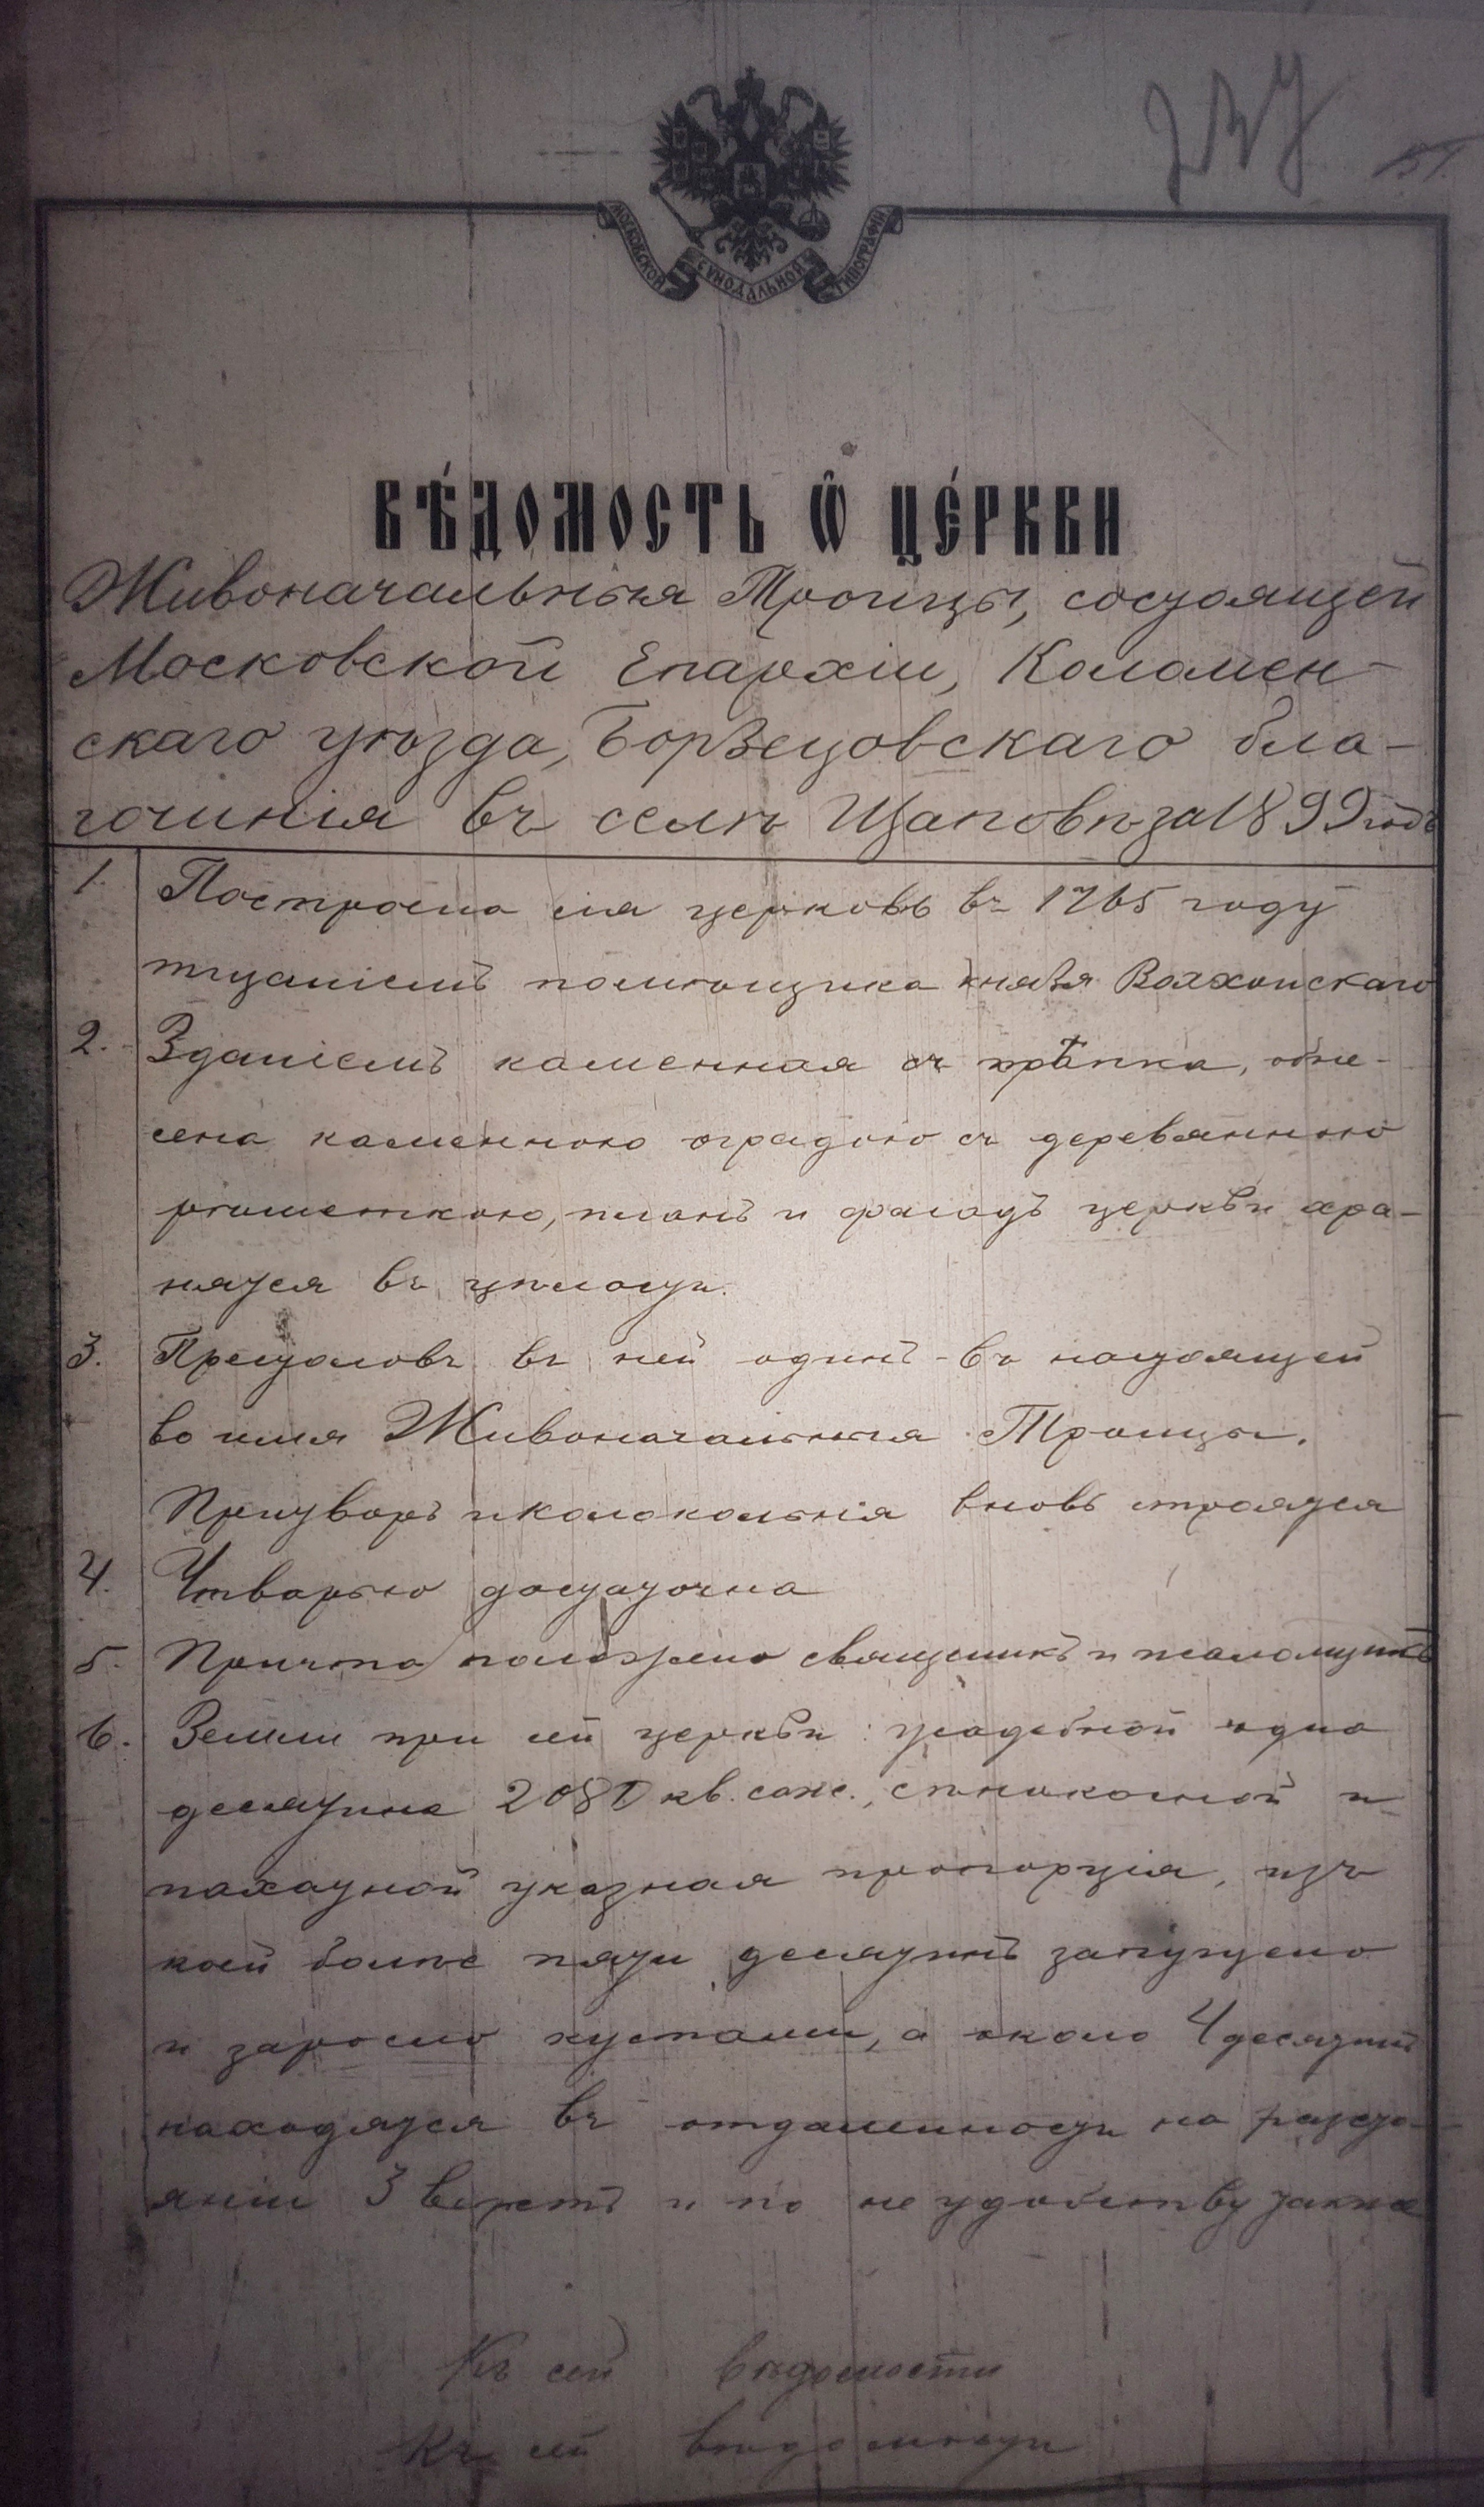 МОСКОВСКОЙ СѴНОДАЛЬНОЙ ТИПОГРАФІИ
ВѢ́ДОМОСТЬ Ѡ҆ ЦЕ́РКВИ
Живоначальныя Троицы, состоящей
Московской Епархіи, Коломен-
скаго уѣзда, Борзецовскаго бла-
гочинія въ селѣ Щаповѣ за 1899 годъ
1. Построена сія церковь въ 1765 году
тщаніемъ помѣщика князя Волхонскаго
2. Зданіемъ каменная и крѣпка, обне-
сена каменною оградою съ деревянною
рѣшеткою, планъ и фасадъ церкви хра-
нятся въ цѣлости.
3. Престоловъ въ ней одинъ - въ настоящей
во имя Живоначальныя Троицы.
Притворъ и колокольня вновь строятся
4. Утварью достаточна
5. Причта положено священникъ и псаломщикъ
6. Земли при сей церкви: усадебной одна
десятина 2080 кв. саж., сѣнокосной и
пахатной указная пропорція, изъ
коей болѣе пяти десятинъ запущено
и заросло кустами, а около 4 десятинъ
находятся въ отдаленности на разсто-
яніи 3 верстъ и по неудобству также
Къ сей вѣдомости
Къ сей вѣдомости